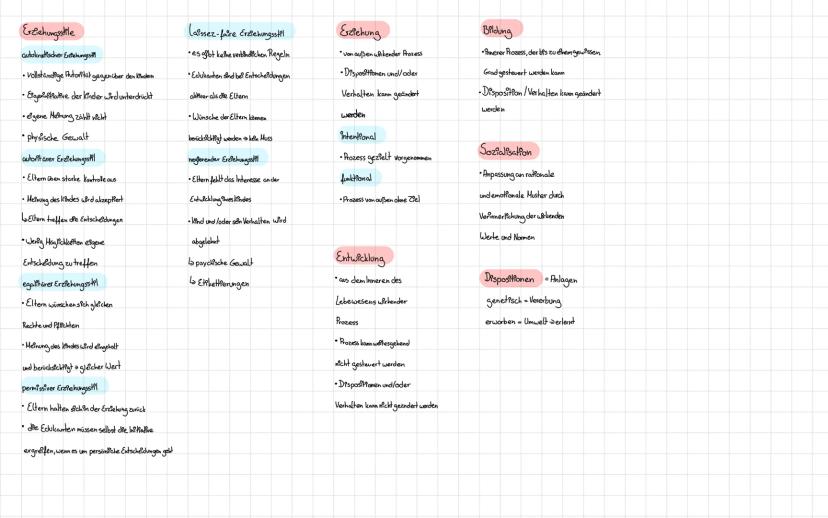 Erziehungsstile
autokratischer Erziehungsstil
• vollständige Autorität gegenüber den Kindern
• Eigeninitiative der Kinder wird unterdrückt
• eigene Meinung zählt nicht
• physische Gewalt
autoritärer Erziehungsstil
• Eltern üben starke Kontrolle aus
• Meinung des Kindes wird akzeptiert
↳ Eltern treffen die Entscheidungen
• Wenig Möglichkeiten eigene
Entscheidung zu treffen
egalitärer Erziehungsstil
• Eltern wünschen sich gleichen
Rechte und Pflichten
• Meinung des Kindes wird eingeholt
und berücksichtigt → gleicher Wert
permissiver Erziehungsstil
• Eltern halten sich in der Erziehung zurück
• die Edukanten müssen selbst die Initiative
ergreifen, wenn es um persönliche Entscheidungen geht
Laissez-faire Erziehungsstil
• es gibt keine verbindlichen Regeln
• Edukanten sind bei Entscheidungen
aktiver als die Eltern
• Wünsche der Eltern können
berücksichtigt werden → kein Muss
negierender Erziehungsstil
• Eltern fehlt das Interesse an der
Entwicklung ihres Kindes
• Kind und/oder sein Verhalten wird
abgelehnt
↳ psychische Gewalt
↳ Etikettierungen
Erziehung
• von außen wirkender Prozess
• Dispositionen und/oder
Verhalten kann geändert
werden
intentional
• Prozess gezielt vorgenommen
funktional
• Prozess von außen ohne Ziel
Entwicklung
• aus dem Inneren des
Lebewesens wirkender
Prozess
• Prozess kann weitesgehend
nicht gesteuert werden
• Dispositionen und/oder
Verhalten kann nicht geändert werden
Bildung
• Innerer Prozess, der bis zu einem gewissen
Grad gesteuert werden kann
• Disposition / Verhalten kann geändert
werden
Sozialisation
• Anpassung an rationale
und emotionale Muster durch
Verinnerlichung der wirkenden
Werte und Normen
Dispositionen = Anlagen
genetisch = Vererbung
erworben = Umwelt → erlernt